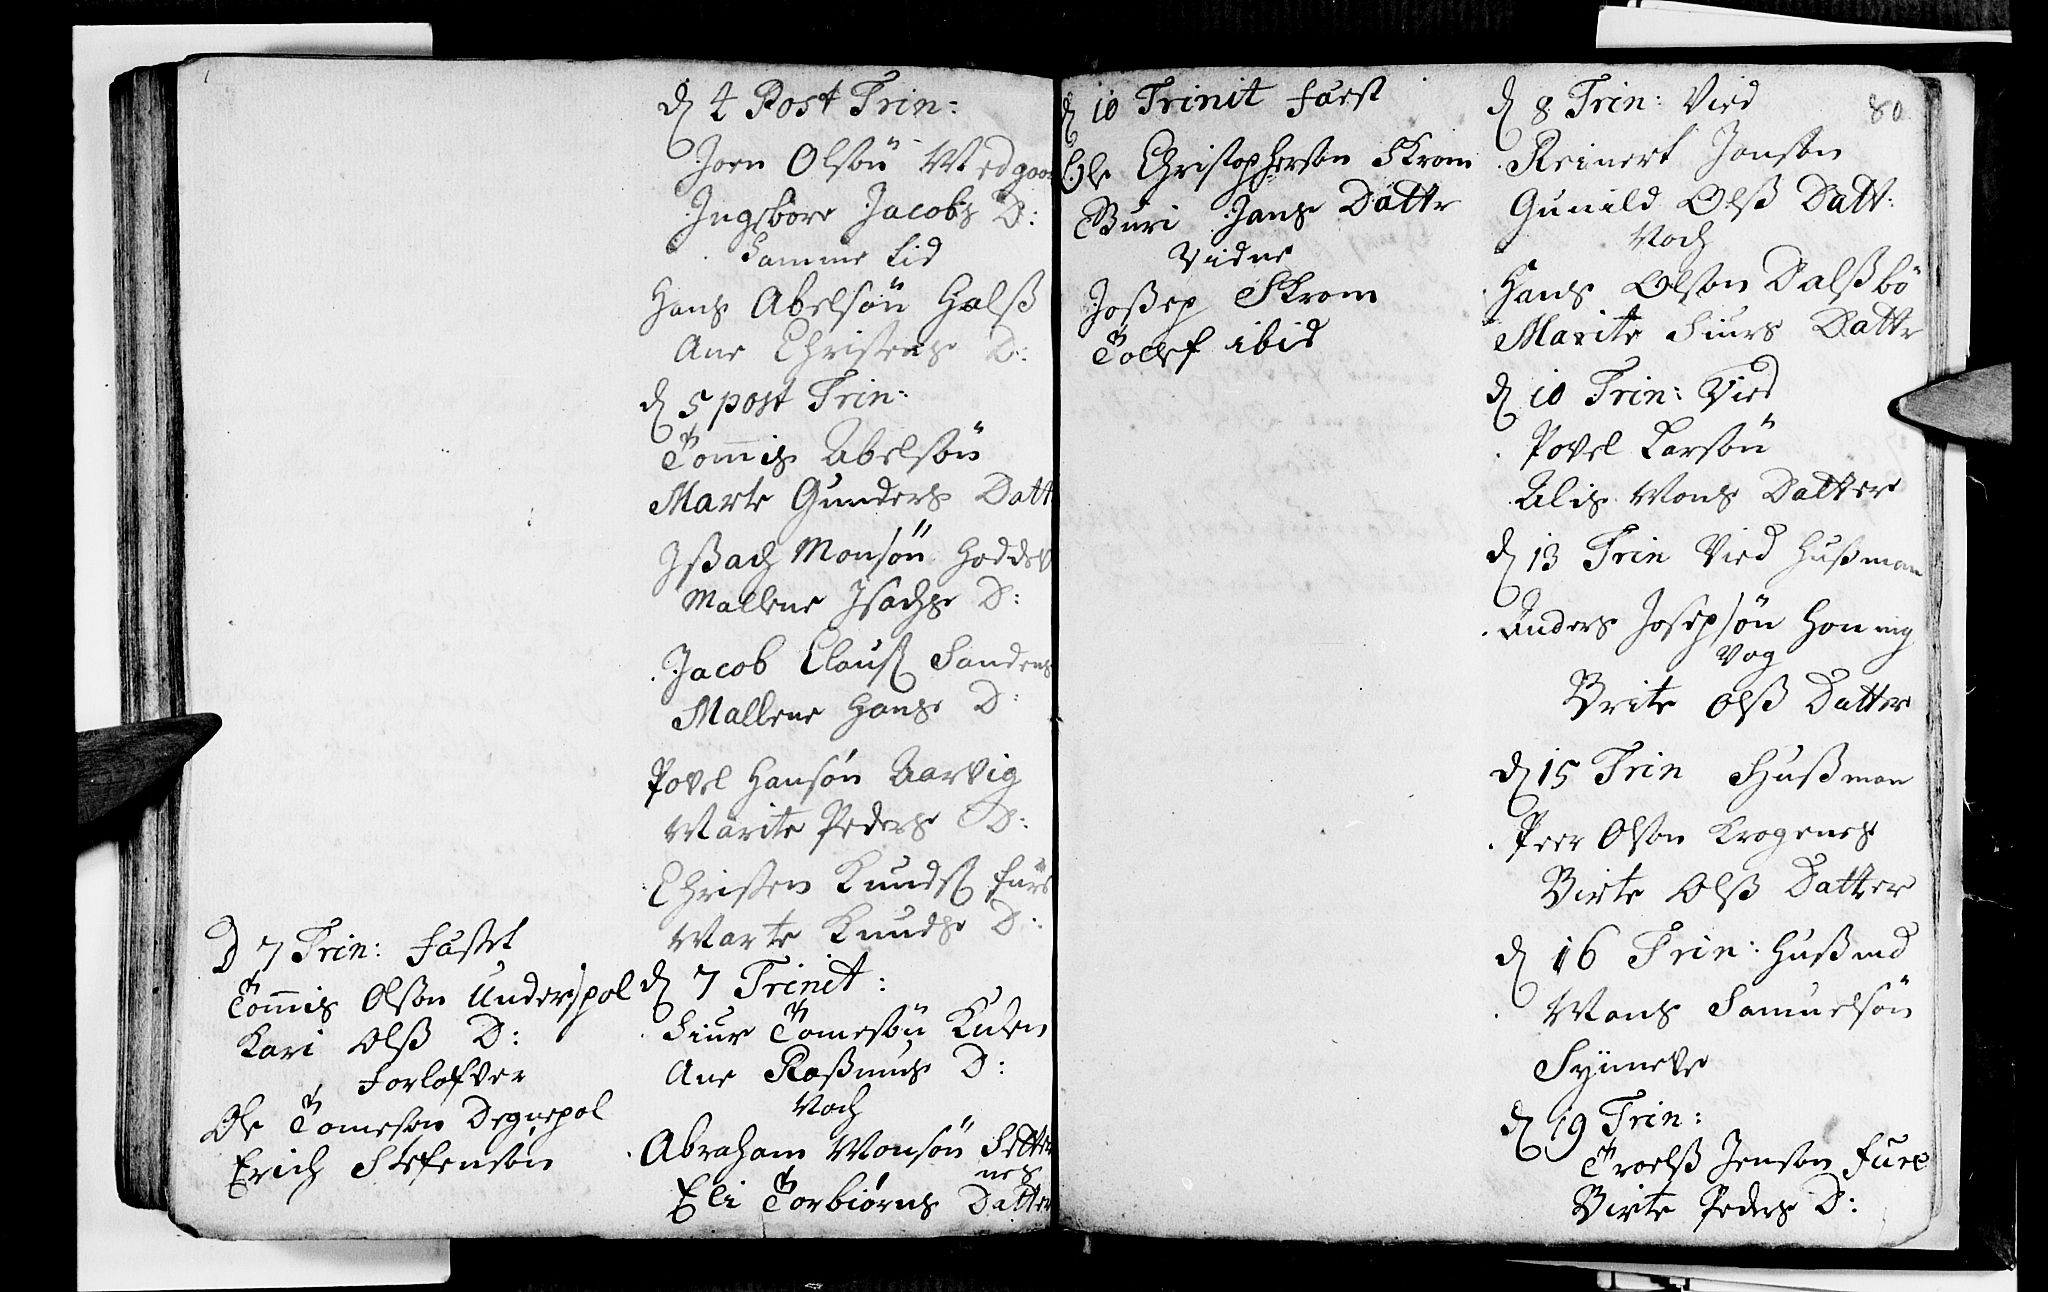 D 7 Trin: fästet
Tommis Olsøn Underspol
Kari Olsß D:
Forlofver
Ole Tomesøn Degnepol
Erich Stefensøn
d 4 Post Trin:
Joen Olsøn Wedgaa
Ingebore Jacobs D:
Samme tid
Hans Abelsøn Halß
Ane Christens D:
d 5 post Trin:
Tommis Abelsøn
Marte Gunders Datt
Jßach Monsøn
Mallene Isachs D:
Jacob Clauß Sandens
Mallene Hanses D:
Povel Hansøn Aarvig
Marite Peders D:
Christen Knuds
Marte Knuds D:
d 7 Trinit:
Siur Tomesøn
Ane Raßmus D:
Noch
Abraham Monsøn Setter
nes
Eli Torbiørns Datter
d 10 Trinit fäest
Ole Christophersøn Skrom
Buri Janse Dattr
Vidne
Joßep Skrom
Tollef ibid
80
d 8 Trin: Vied
Reinert Jonsøn
Gunild Olß Datt:
Noch
Hans Olsøn Dalßbö
Marite Siurs Dattr
d 10 Trin: Vied
Povel Larsøn
Alis Mons Datter
d 13 Trin Vied Hußman
Anders Josepsøn Honing
vog
Brite Olß Datter
d 15 Trin Hußman
Peer Olsøn Krogenes
Birte Olß Datter
d 16 Trin: Hußmd
Mons Samuelsøn
Synneve
d 19 Trin:
Troelß Jensøn Fure
Birte Peders D: